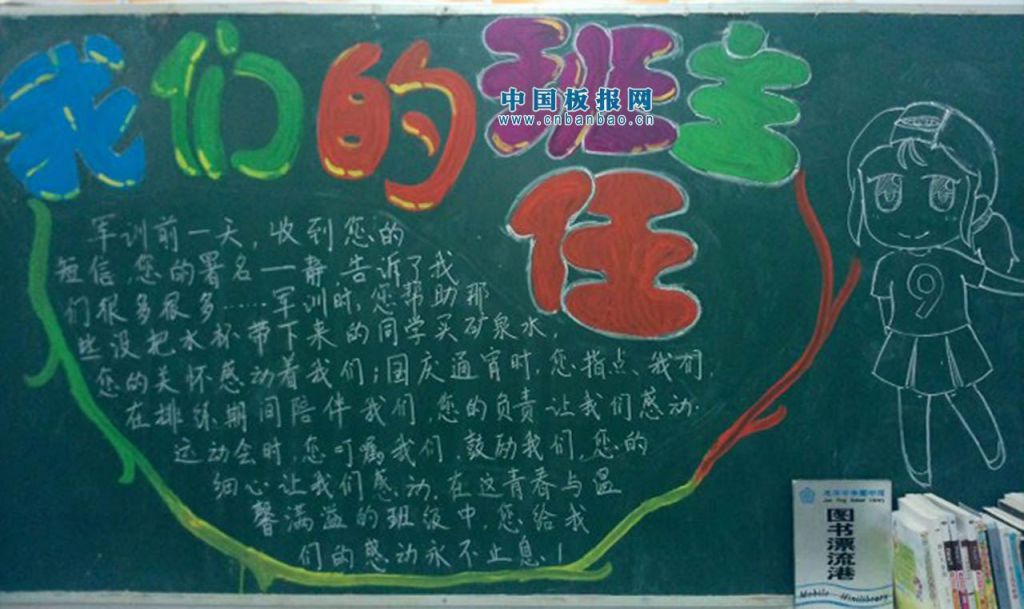 我们的班主
任
中国板报网
www.cnbanbao.cn
军训前一天，收到您的
短信，您的署名——静，告诉了我
们很多很多……军训时，您帮助那
些没把水杯带下来的同学买矿泉水，
您的关怀感动着我们；国庆通宵时，您指点我们，
在排练期间陪伴我们，您的负责让我们感动.
运动会时，您叮嘱我们，鼓励我们，您的
细心让我们感动，在这青春与温
馨满溢的班级中，您给我
们的感动永不止息！
9
图书漂流港
Mobile Minilibrary